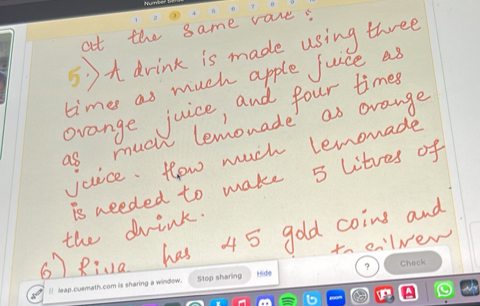 1 2 3 4 5 6 7 8 9
at the same
5.) A drink is made using three
times as much apple juice as
orange juice, and four times
as much lemonade as orange
juice. How much lemonade
is needed to make 5 litres of
the drink.
6) Riya has 45 gold coins and
to silver
|| leap.cuemath.com is sharing a window. Stop sharing Hide
? Check
zoom